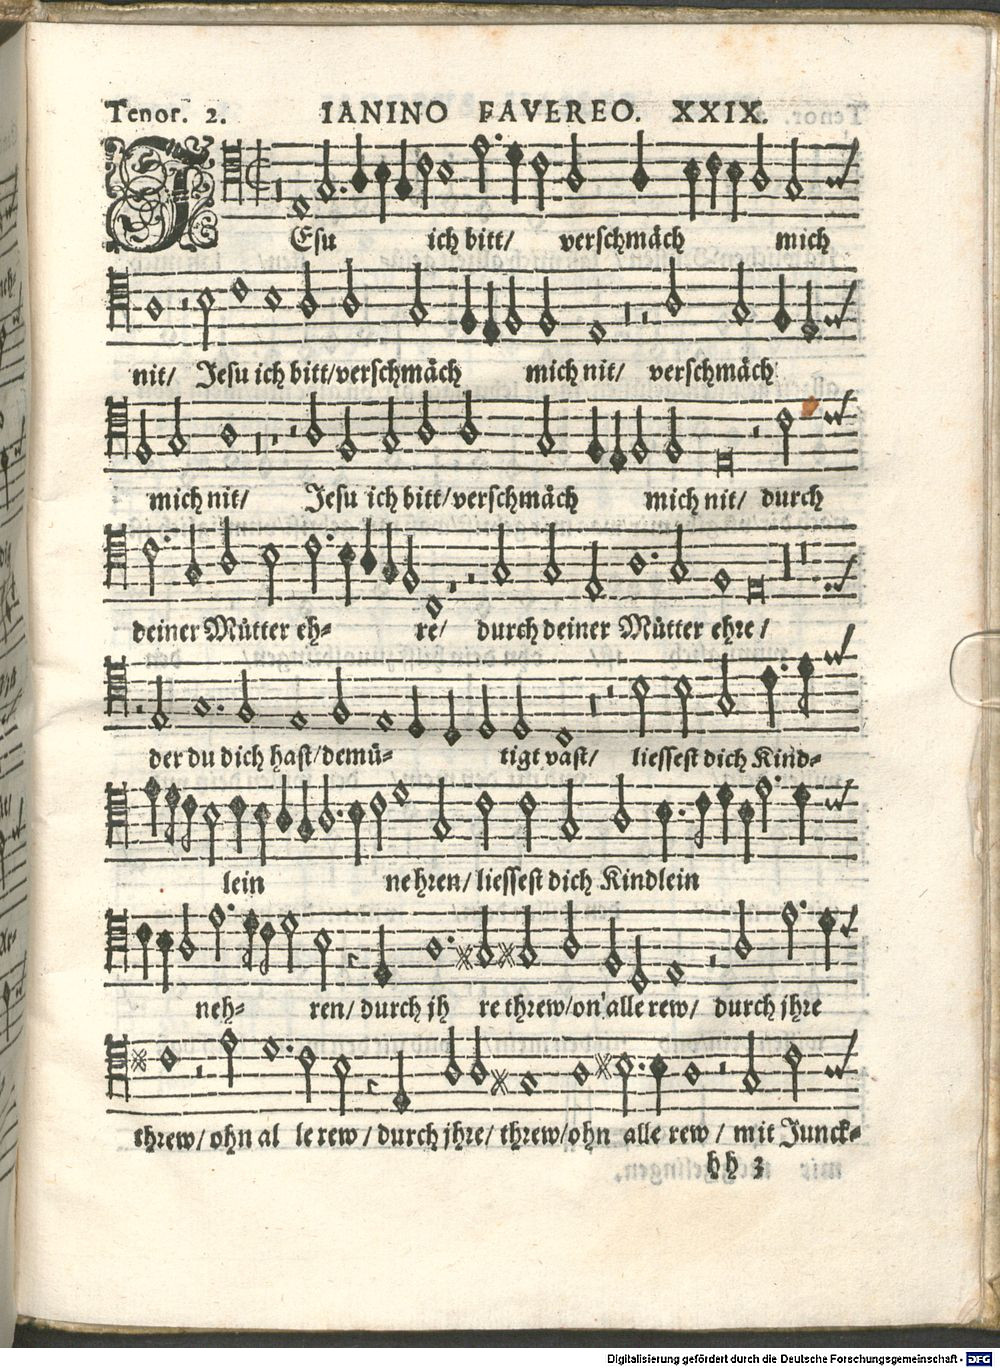 Tenor. 2. IANINO FAVEREO. XXIX.
JEsu ich bitt/ verschmäch mich
nit/ Jesu ich bitt/verschmäch mich nit/ verschmäch
mich nit/ Jesu ich bitt/verschmäch mich nit/ durch
deiner Můtter eh= re/ durch deiner Můtter ehre/
der du dich hast/demü= tigt vast/ liessest dich Kind=
lein nehren/ liessest dich Kindlein
neh= ren/ durch jh re threw/on alle rew/ durch jhre
threw/ ohn al le rew/ durch jhre/ threw/ohn alle rew/ mit Junck=
hh 3
Digitalisierung gefördert durch die Deutsche Forschungsgemeinschaft - DFG